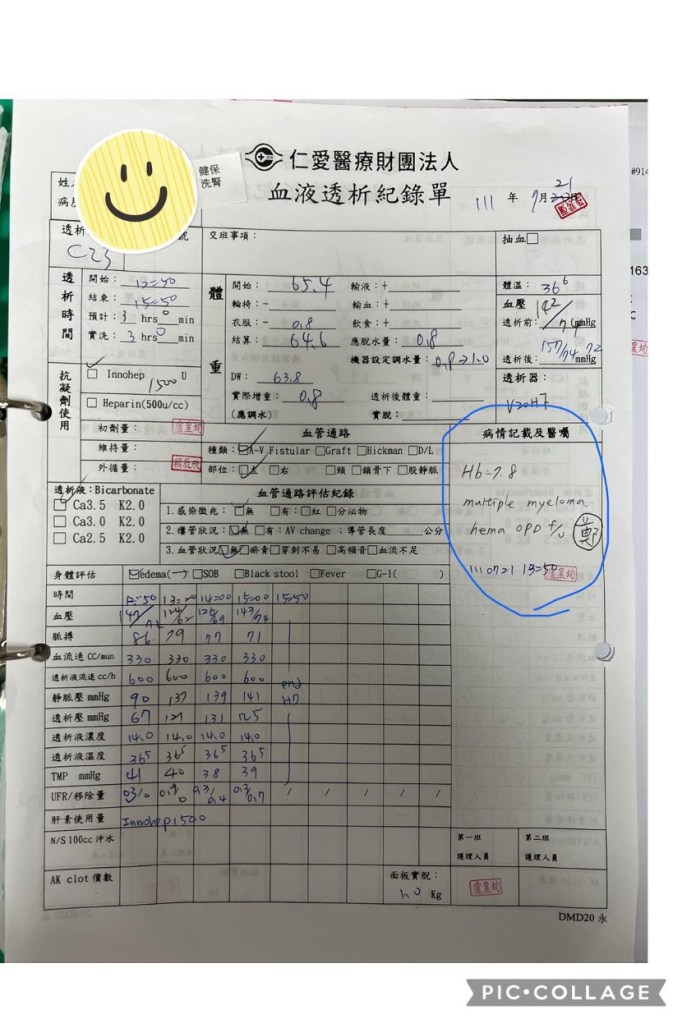 仁愛醫療財團法人
健保
洗腎
血液透析紀錄單
111 年 7月 21
#914
163
C
姓
病
透析
C23
號
交班事項：
抽血□
透析時間
開始：12:50
結束：15:50
預計：3 hrs 0 min
實洗：3 hrs 0 min
體重
開始：65.4
輪椅：-
衣服：- 0.8
結算：64.6
DW： 63.8
實際增重：0.8
(應調水)
輸液：+
輸血：+
飲食：+
應脫水量：0.8
機器設定調水量：0.8→1.0
透析後體重：
實脫：
體溫：36⁶
血壓
透析前：142/74 mmHg
透析後：157/74 72 mmHg
透析器：
V20HF
抗凝劑使用
□ Innohep 1500 U
□ Heparin(500u/cc)
初劑量：
維持量：
外循量：
血管通路
種類：☑A-V Fistular □Graft □Hickman □D/L
部位：☑左 □右 □頸 □鎖骨下 □股靜脈
病情記載及醫囑
Hb=7.8
multiple myeloma
hema OPD f/u 鄭
1110721 13:50
透析液：Bicarbonate
□ Ca3.5 K2.0
□ Ca3.0 K2.0
□ Ca2.5 K2.0
血管通路評估紀錄
1.感染徵兆：☑無 □有：□紅 □分泌物
2.瘻管狀況：☑無 □有：AV change ；導管長度 公分
3.血管狀況☑無□瘀青□穿刺不易□高頻音□血流不足
身體評估 ☑edema(一) □SOB □Black stool □Fever □G-I( )
時間 12:50 13:00 14:00 15:00 15:50
血壓 147/74 124/62 125/69 143/74
脈搏 86 79 77 71
血流速 CC/mun 330 330 330 330
透析液流速 cc/h 600 600 600 600
end
HD
靜脈壓 mmHg 90 137 139 141
透析壓 mmHg 67 121 131 125
透析液濃度 14.0 14.0 14.0 14.0
透析液溫度 36⁵ 36⁵ 36⁵ 36⁵
TMP mmHg 41 40 38 39
UFR/移除量 0.3/0 0.3/0.4 0.3/0.7 / / / / /
肝素使用量 Innohep1500
N/S100cc 沖水
AK clot 價數
面板實脫：
1.0 Kg
第一班
護理人員
第二班
護理人員
DMD20 永
PIC•COLLAGE